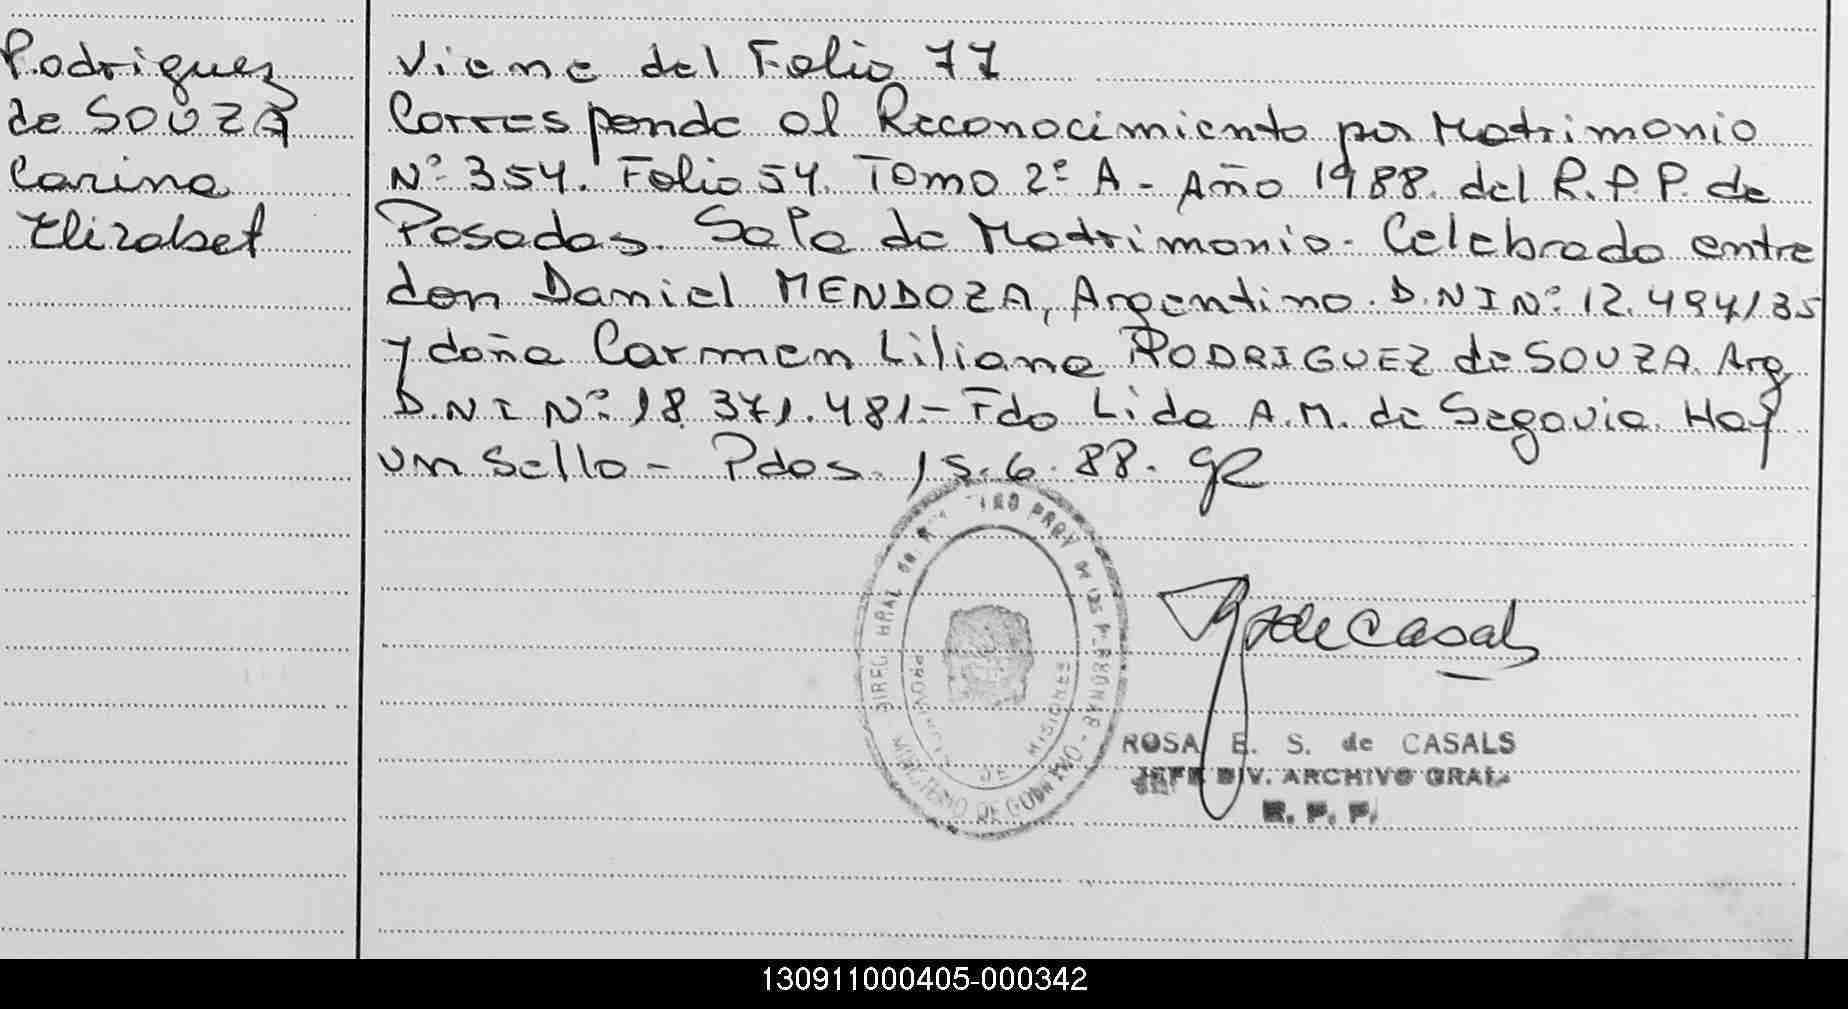 Rodriguez
de SOUZA
Carina
Elizabet
Viene del Folio 77
Corresponde al Reconocimiento por Matrimonio
Nº 354. Folio 54. Tomo 2º A - Año 1988. del R.P.P. de
Posadas. Sala de Matrimonio. Celebrado entre
don Daniel MENDOZA, Argentino. D.NI Nº: 12.494135
y doña Carmen Liliana RODRIGUEZ de SOUZA. Arg
D.NI Nº: 18.371.481.- Fdo Lida A.M. de Segovia. Hay
un Sello - Pdas. 15.6.88.
DIREC. GRAL DEL PROV DE LAS PERSONAS
MINISTERIO DE GOBIERNO
PROVINCIA DE MISIONES
de Casals
ROSA E. S. de CASALS
JEFE DIV. ARCHIVO GRAL.
R. P. P.
130911000405-000342